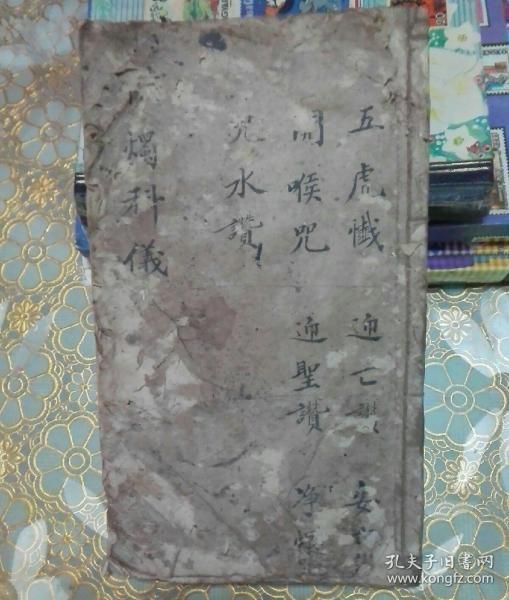 五虎懺 迎亡讃 安
開喉咒 迎聖讃 净
咒水讃
燭科儀
孔夫子旧书网
www.kongfz.com